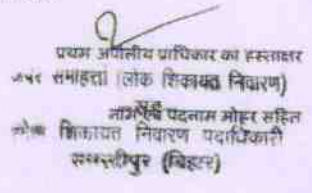 प्रथम अपीलीय प्राधिकार का हस्ताक्षर
अपर समाहर्त्ता (लोक शिकायत निवारण)
सह
नाम एवं पदनाम मोहर सहित
लोक शिकायत निवारण पदाधिकारी
समस्तीपुर (बिहार)